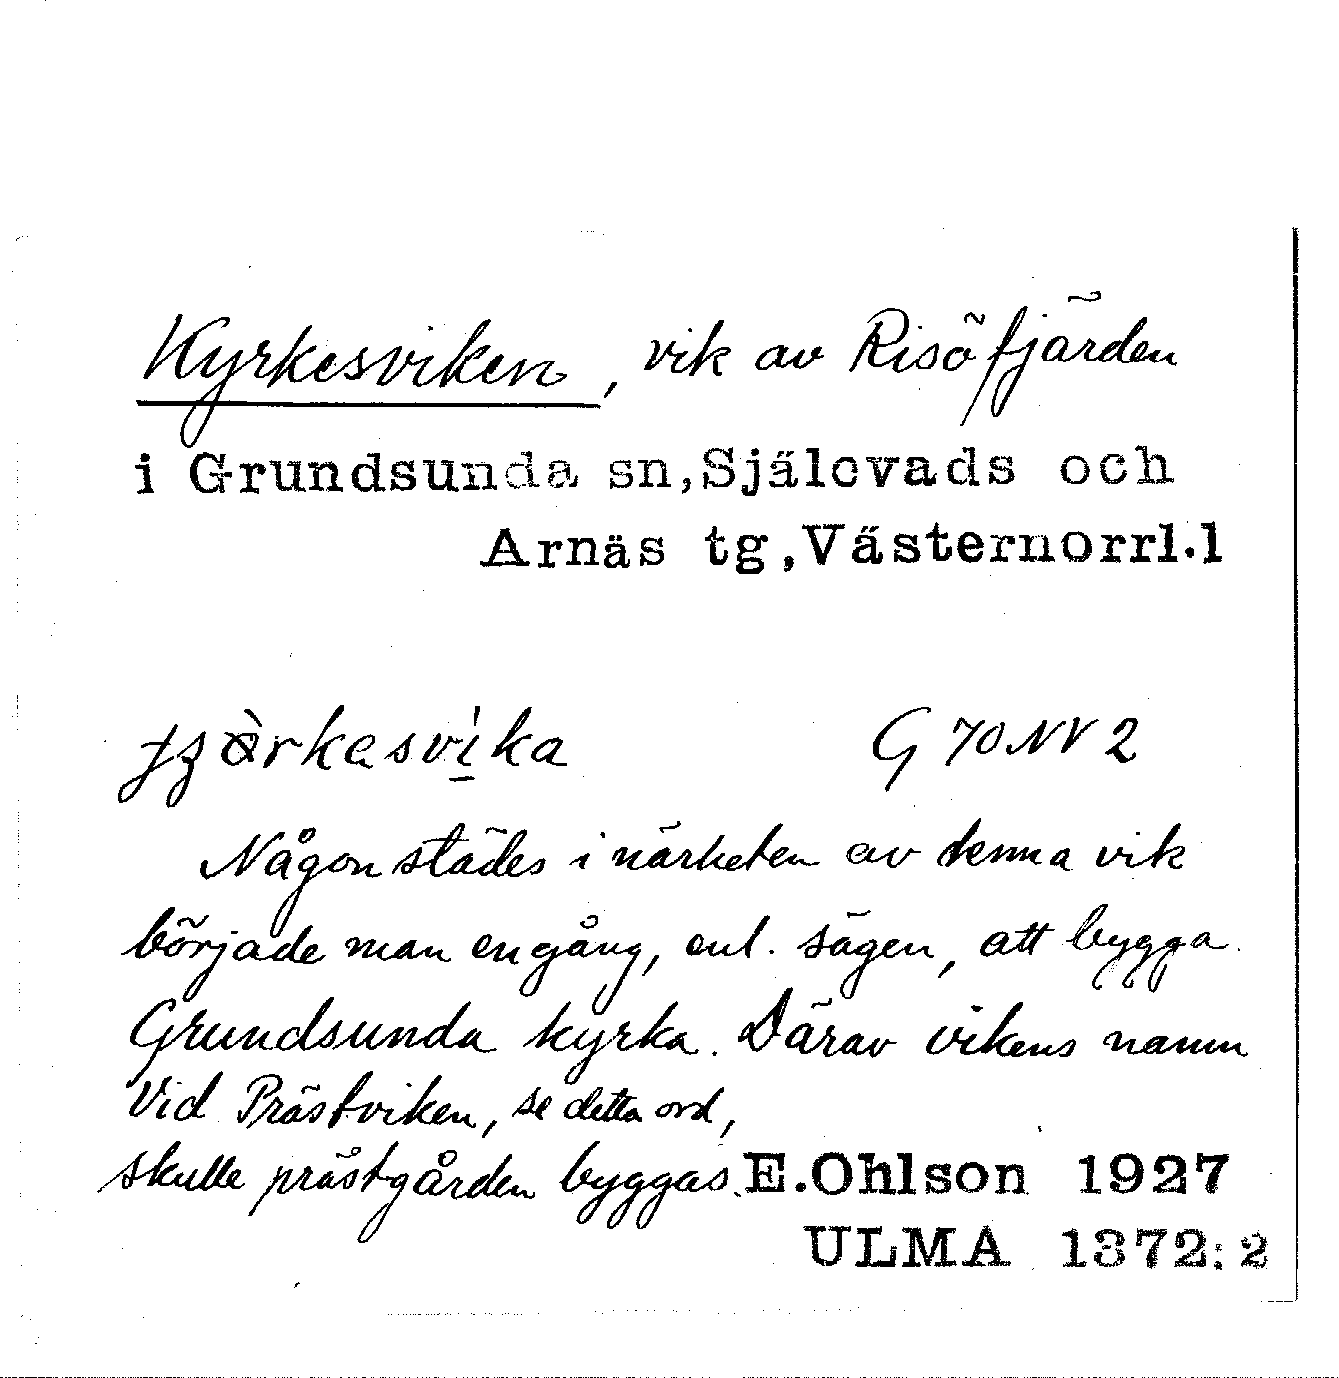 Kyrkesviken, vik av Risöfjärden
i Grundsunda sn, Själevads och
Arnäs tg, Västernorrl.l
G 70 NV 2
Någonstädes i närheten av denna vik
började man en gång, enl. sägen, att bygga
Grundsunda kyrka. Därav vikens namn
Vid Prästviken, se detta ord,
skulle prästgården byggas. E.Ohlson 1927
ULMA 1372:2